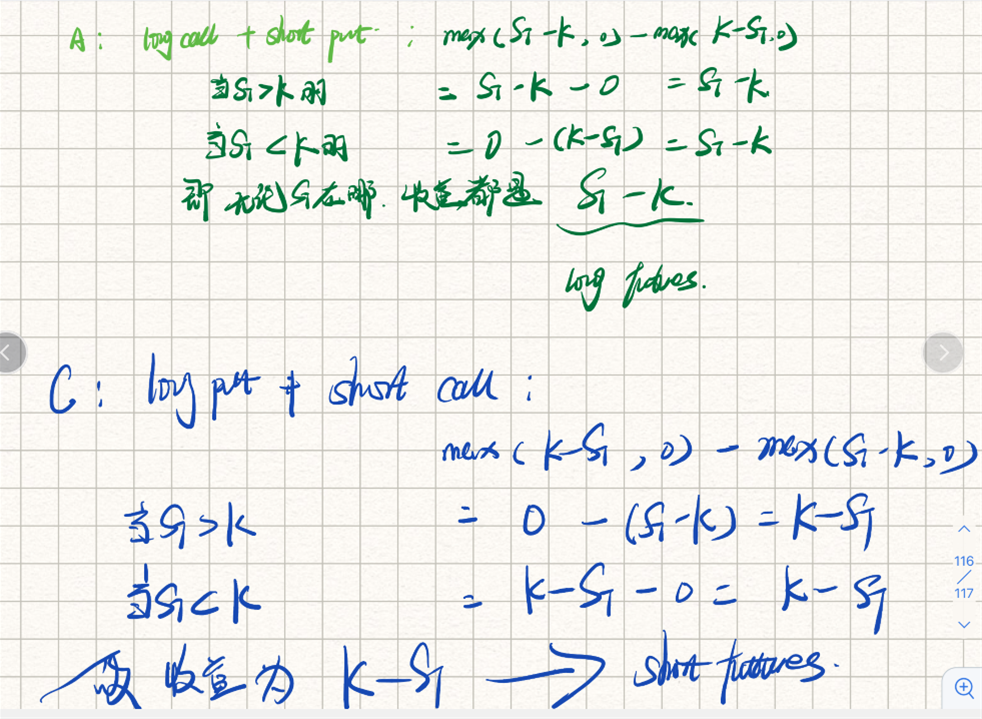 A: long call + short put : max(S_T-K, 0) - max(K-S_T,0)
当S_T>K时 = S_T-K-0 = S_T-K
当S_T<K时 = 0-(K-S_T) = S_T-K
即无论S_T在哪. 收益都是 S_T-K.
long futures.
C: long put + short call :
max(K-S_T, 0) - max(S_T-K, 0)
当S_T>K = 0 - (S_T-K) = K-S_T
当S_T<K = K-S_T-0 = K-S_T
收益为 K-S_T → short futures.
116
/
117